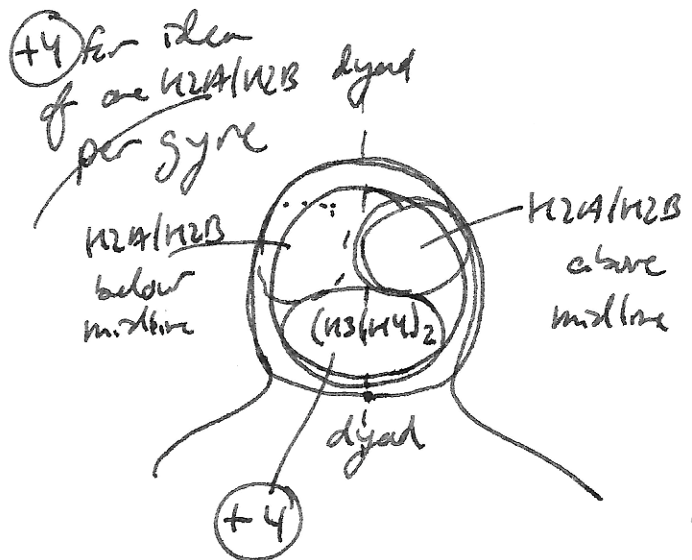 +4 for idea
of one H2A/H2B
per gyre
dyad
H2A/H2B
below
midline
H2A/H2B
above
midline
(H3/H4)2
dyad
+4